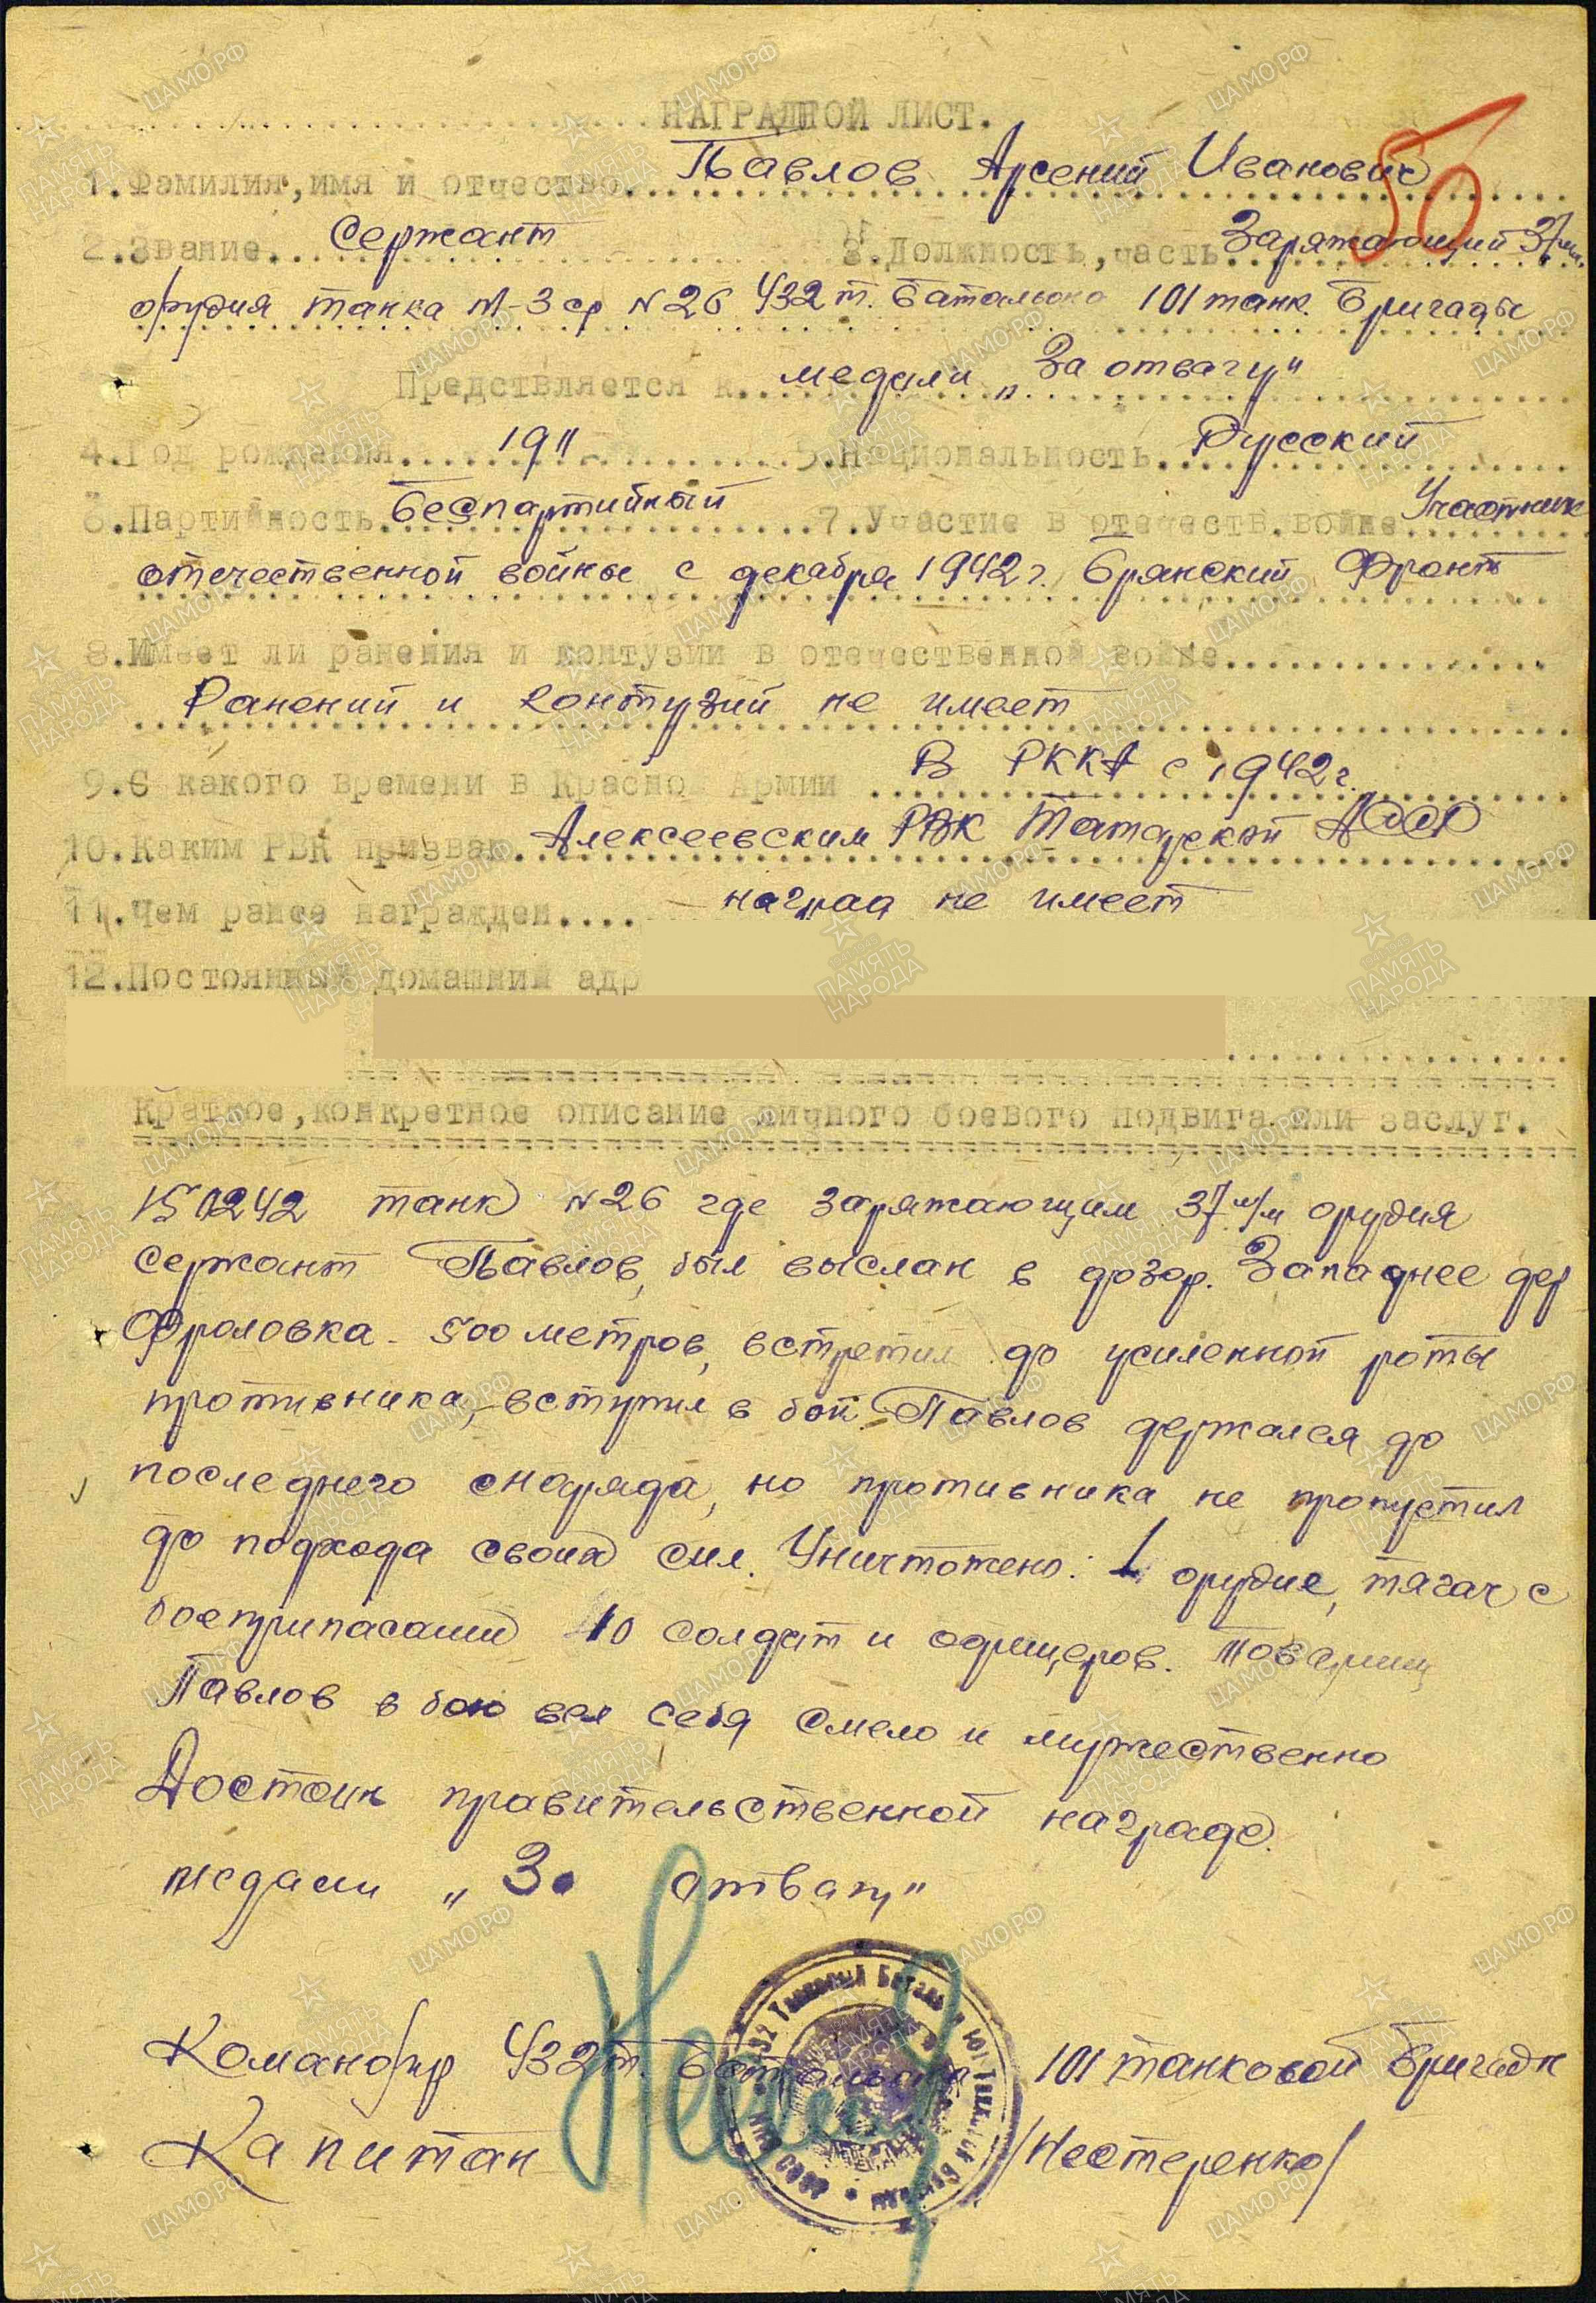 НАГРАДНОЙ ЛИСТ.
50
1.Фамилия,имя и отчество. Павлов Арсений Иванович
2.Звание. Сержант 3.Должность,часть Заряжающий 37мм.
орудия танка М-3 ср №26 432 т. батальона 101 танк. бригады
Представляется к. медали „За отвагу"
4.Год рождения. 1911 5.Национальность. Русский
6.Партийность. Беспартийный 7.Участие в отечеств.войне Участник
отечественной войны с декабря 1942 г. Брянский Фронт
8.Имеет ли ранения и контузии в отечественной войне.
Ранений и контузий не имеет
9.С какого времени в Красно Армии В РККА с 1942 г.
10.Каким РВК призван. Алексеевским РВК Татарской АССР
11.Чем ранее награжден. наград не имеет
12.Постоянный домашний адр
Краткое,конкретное описание личного боевого подвига или заслуг.
танк №26 где заряжающим 37 м/м орудия
сержант Павлов, был выслан в дозор. Западнее дер
Фроловка - 500 метров, встретил до усиленной роты
противника, вступил в бой. Павлов держался до
последнего снаряда, но противника не пропустил
до подхода своих сил. Уничтожено: 1 орудие, тягач с
боеприпасами 10 солдат и офицеров. Товарищ
Павлов в бою вел себя смело и мужественно
Достоин правительственной награде.
медали „За отвагу"
Командир 432 т. батальона 101 танковой бригады
Капитан /Нестеренко/
ЦАМО РФ
ПАМЯТЬ НАРОДА